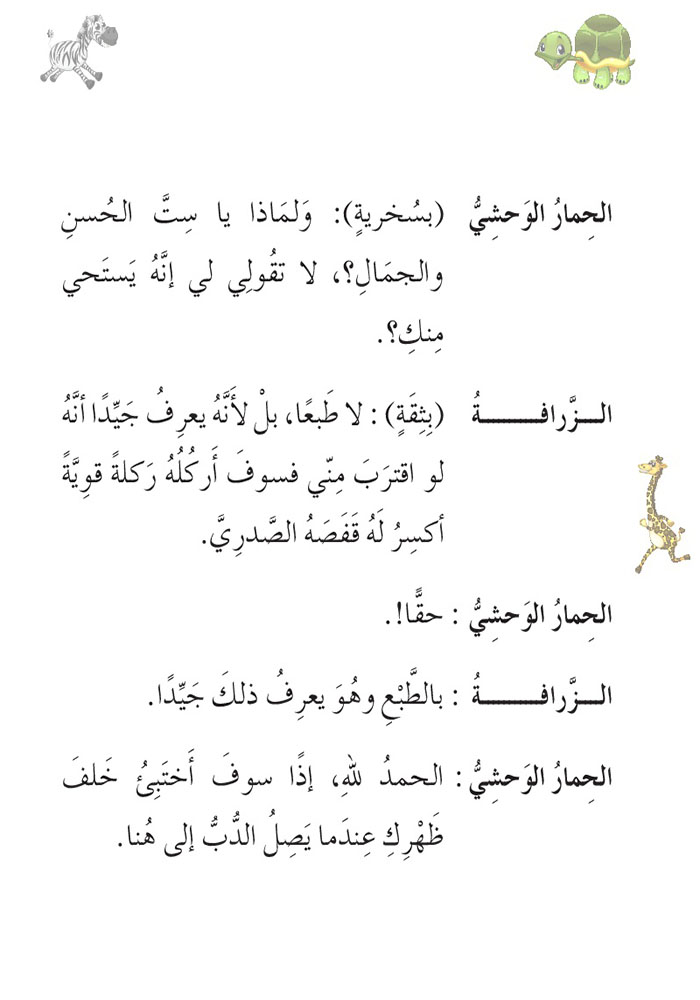 الحِمارُ الوَحشِيُّ (بسُخريةٍ): وَلمَاذا يا سِتَّ الحُسنِ
والجمَالِ؟، لا تقُولِي لي إنَّهُ يَستَحي
مِنكِ؟.
الـــزَّرافـــــــةُ (بِثِقَةٍ): لا طَبعًا، بلْ لأَنَّهُ يعرِفُ جَيِّدًا أنَّهُ
لو اقترَبَ مِنّي فسوفَ أَركُلُهُ رَكلةً قوِيَّةً
أكسِرُ لَهُ قَفَصَهُ الصَّدرِيَّ.
الحِمارُ الوَحشِيُّ : حقًّا!.
الـــزَّرافـــــــةُ : بالطَّبْعِ وهُوَ يعرِفُ ذلكَ جَيِّدًا.
الحِمارُ الوَحشِيُّ : الحمدُ للهِ، إذًا سوفَ أَختَبِئُ خَلفَ
ظَهْرِكِ عِندَما يَصِلُ الدُّبُّ إلى هُنا.